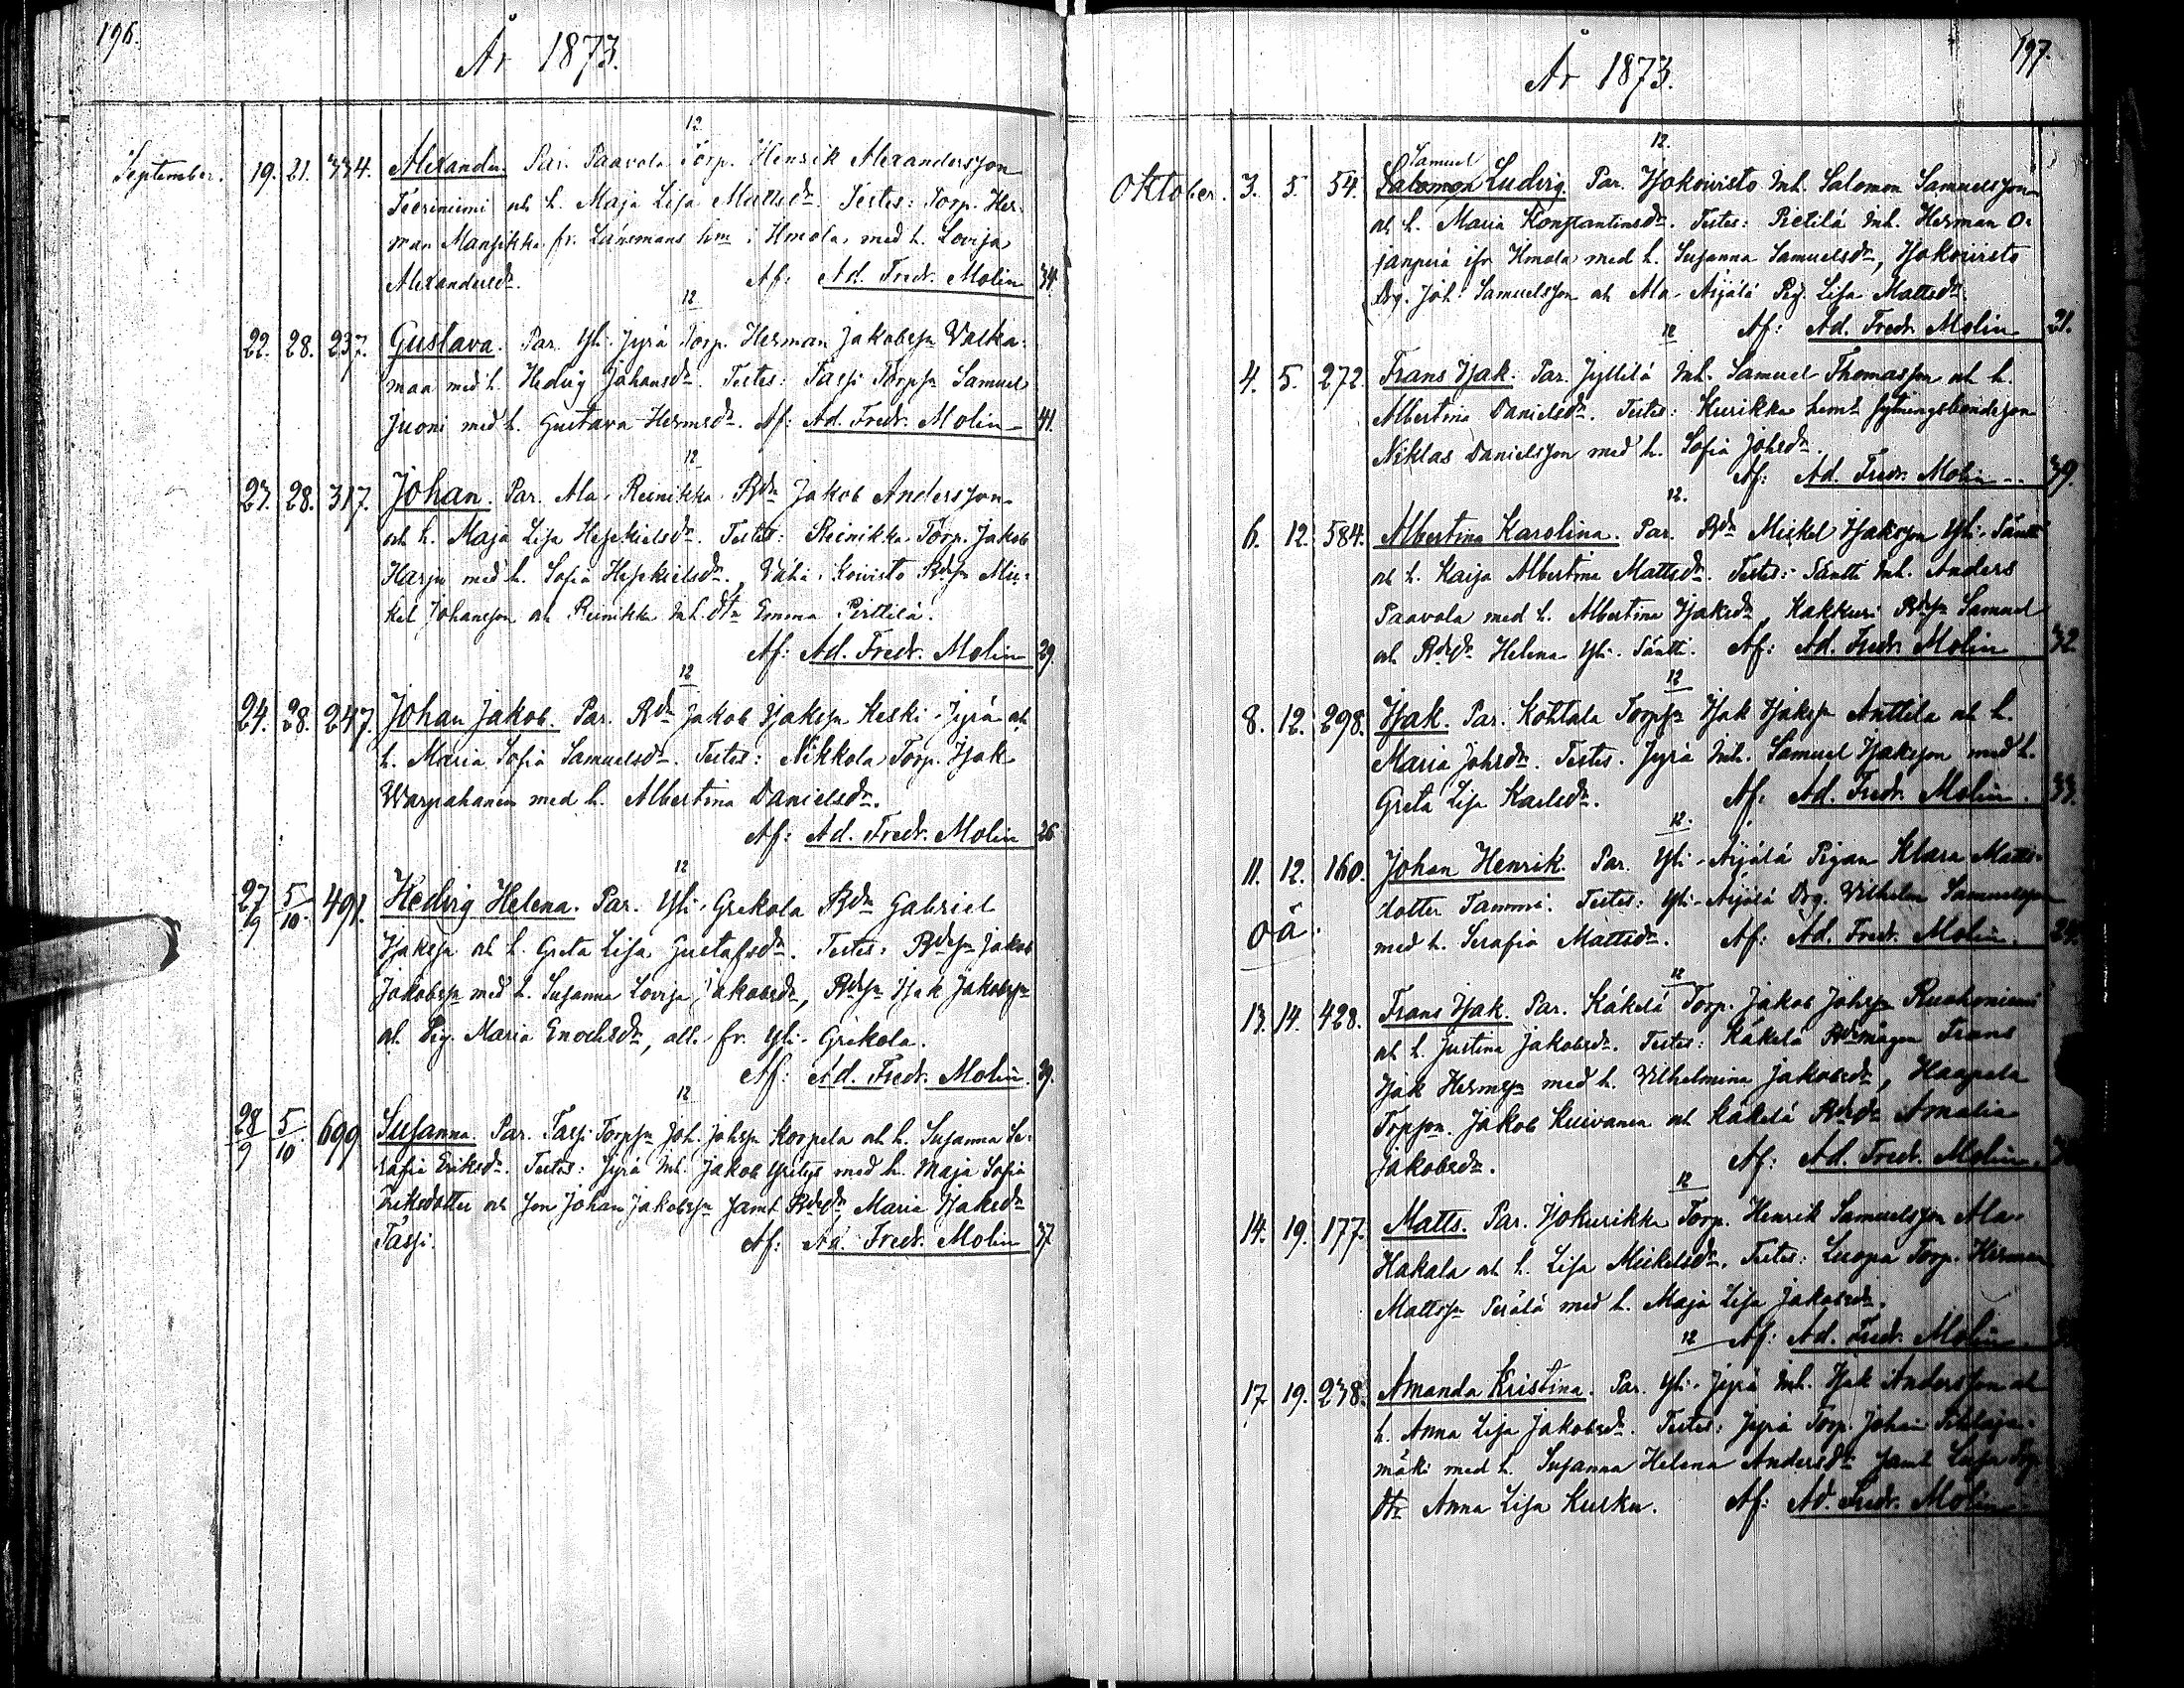 196.
År 1873.
12
September. 19. 21. 334. Alexander. Par. Paavola Torp. Henrik Alexandersson
Teeriniemi och h. Maja Lisa Mattsdr. Testes: Torp. Her-
man Mansikka fr. Länsmans hm i Ilmola med h. Lovisa
Alexandersdr. Af: Ad. Fredr. Molin 34.
12
22. 28. 237. Gustava. Par. Yli-Jyrä Torp. Herman Jakobsn Valka-
maa med h. Hedvig Johansdr. Testes: Tassi Torpsn Samuel
Juoni med h. Gustava Hermsdr. Af: Ad. Fredr. Molin 41.
12
23. 28. 317. Johan. Par. Ala-Reinikka Bdn Jakob Andersson
och h. Maja Lisa Hesekielsdr. Testes: Reinikka Torp. Jakob
Harju med h. Sofia Hesekielsdr, Vähä-Koivisto Bdsn Mi-
kel Johansson och Reinikka Inh. dtr Emma Perttilä.
Af: Ad. Fredr. Molin 29.
12
24. 28. 247. Johan Jakob. Par. Bdn Jakob Isaksn Keski-Jyrä och
h. Maria Sofia Samuelsdr. Testes: Nikkola Torp. Isak
Warpahanen med h. Albertina Danielsdr.
Af: Ad. Fredr. Molin 26
12
27/9 5/10 491. Hedvig Helena. Par. Yli-Grekola Bdn Gabriel
Isaksn och h. Greta Lisa Gustafsdr. Testes: Bdsn Jakob
Jakobsn med h. Susanna Lovisa Jakobsdr, Bdsn Isak Jakobsn
och Pig. Maria Enochsdr, alla fr. Yli-Grekola.
Af: Ad. Fredr. Molin. 39.
12
28/9 5/10 699 Susanna. Par. Tassi Torpsn Joh. Johsn Korpela och h. Susanna Se-
rafia Eriksdr. Testes: Jyrä Inh. Jakob med h. Maja Sofia
Eriksdotter och son Johan Jakobsn samt Bdsdr Maria Isaksdr
Tassi. Af: Ad. Fredr. Molin 37
197.
År 1873.
12.
Samuel
Oktober. 3. 5. 54. Salomon Ludvig. Par. Isokoivisto Inh. Salomon Samuelsson
och h. Maria Konstantinsdr. Testes: Pietilä Inh. Herman O-
janperä ifr Ilmola med h. Susanna Samuelsdr, Isokoivisto
Drg. Joh. Samuelsson och Ala-Äijälä Pig. Lisa Mattsdr.
12 Af: Ad. Fredr. Molin 21.
4. 5. 272. Frans Isak. Par. Jyllilä Inh. Samuel Thomasson och h.
Albertina Danielsdr. Testes: Kurikka hemt sytningsbondeson
Niklas Danielsson med h. Sofia Johsdr.
12. Af: Ad. Fredr. Molin 39.
6. 12. 584. Albertina Karolina. Par. Bdn Mickel Isaksson Yli-Säntti
och h. Kaisa Albertina Mattsdr. Testes: Säntti Inh. Anders
Paavola med h. Albertina Isaksdr, Kakkuri Bdsn Samuel
och Bdsdr Helena Yli-Säntti. Af: Ad. Fredr. Molin 32
12
8. 12. 298. Isak. Par. Kohtala Torpsn Isak Isaksn Anttila och h.
Maria Johsdr. Testes. Jyrä Inh. Samuel Isaksson med h.
Greta Lisa Karlsdr. Af: Ad. Fredr. Molin. 33.
12.
11. 12. 160. Johan Henrik. Par. Yli-Äijälä Pigan Klara Matts-
dotter Tammi. Testes: Yli-Äijälä Drg. Vilhelm Samuelsson
oä. med h. Serafia Mattsdr. Af: Ad. Fredr. Molin. 24.
12
13. 14. 428. Frans Isak. Par. Käkelä Torp. Jakob Johsn Ruohoniemi
och h. Justina Jakobsdr. Testes: Käkelä Bdmågen Frans
Isak Hermsn med h. Vilhelmina Jakobsdr, Haapala
Torpson. Jakob Kuivanen och Käkelä Bdsdr Amalia
Jakobsdr. Af: Ad. Fredr. Molin.
12
14. 19. 177. Matts. Par. Isokurikka Torp. Henrik Samuelsson Ala-
Hakala och h. Lisa Mickelsdr. Testes: Luopa Torp. Herman
Mattsn Perälä med h. Maja Lisa Jakobsdr.
12 Af: Ad. Fredr. Molin.
17. 19. 238. Amanda Kristina. Par. Yli-Jyrä Inh. Isak Andersson och
h. Anna Lisa Jakobsdr. Testes: Jyrä Torp. Johan Pihlaja-
mäki med h. Susanna Helena Andersdr samt
dtr Anna Lisa Kurku. Af: Ad. Fredr. Molin